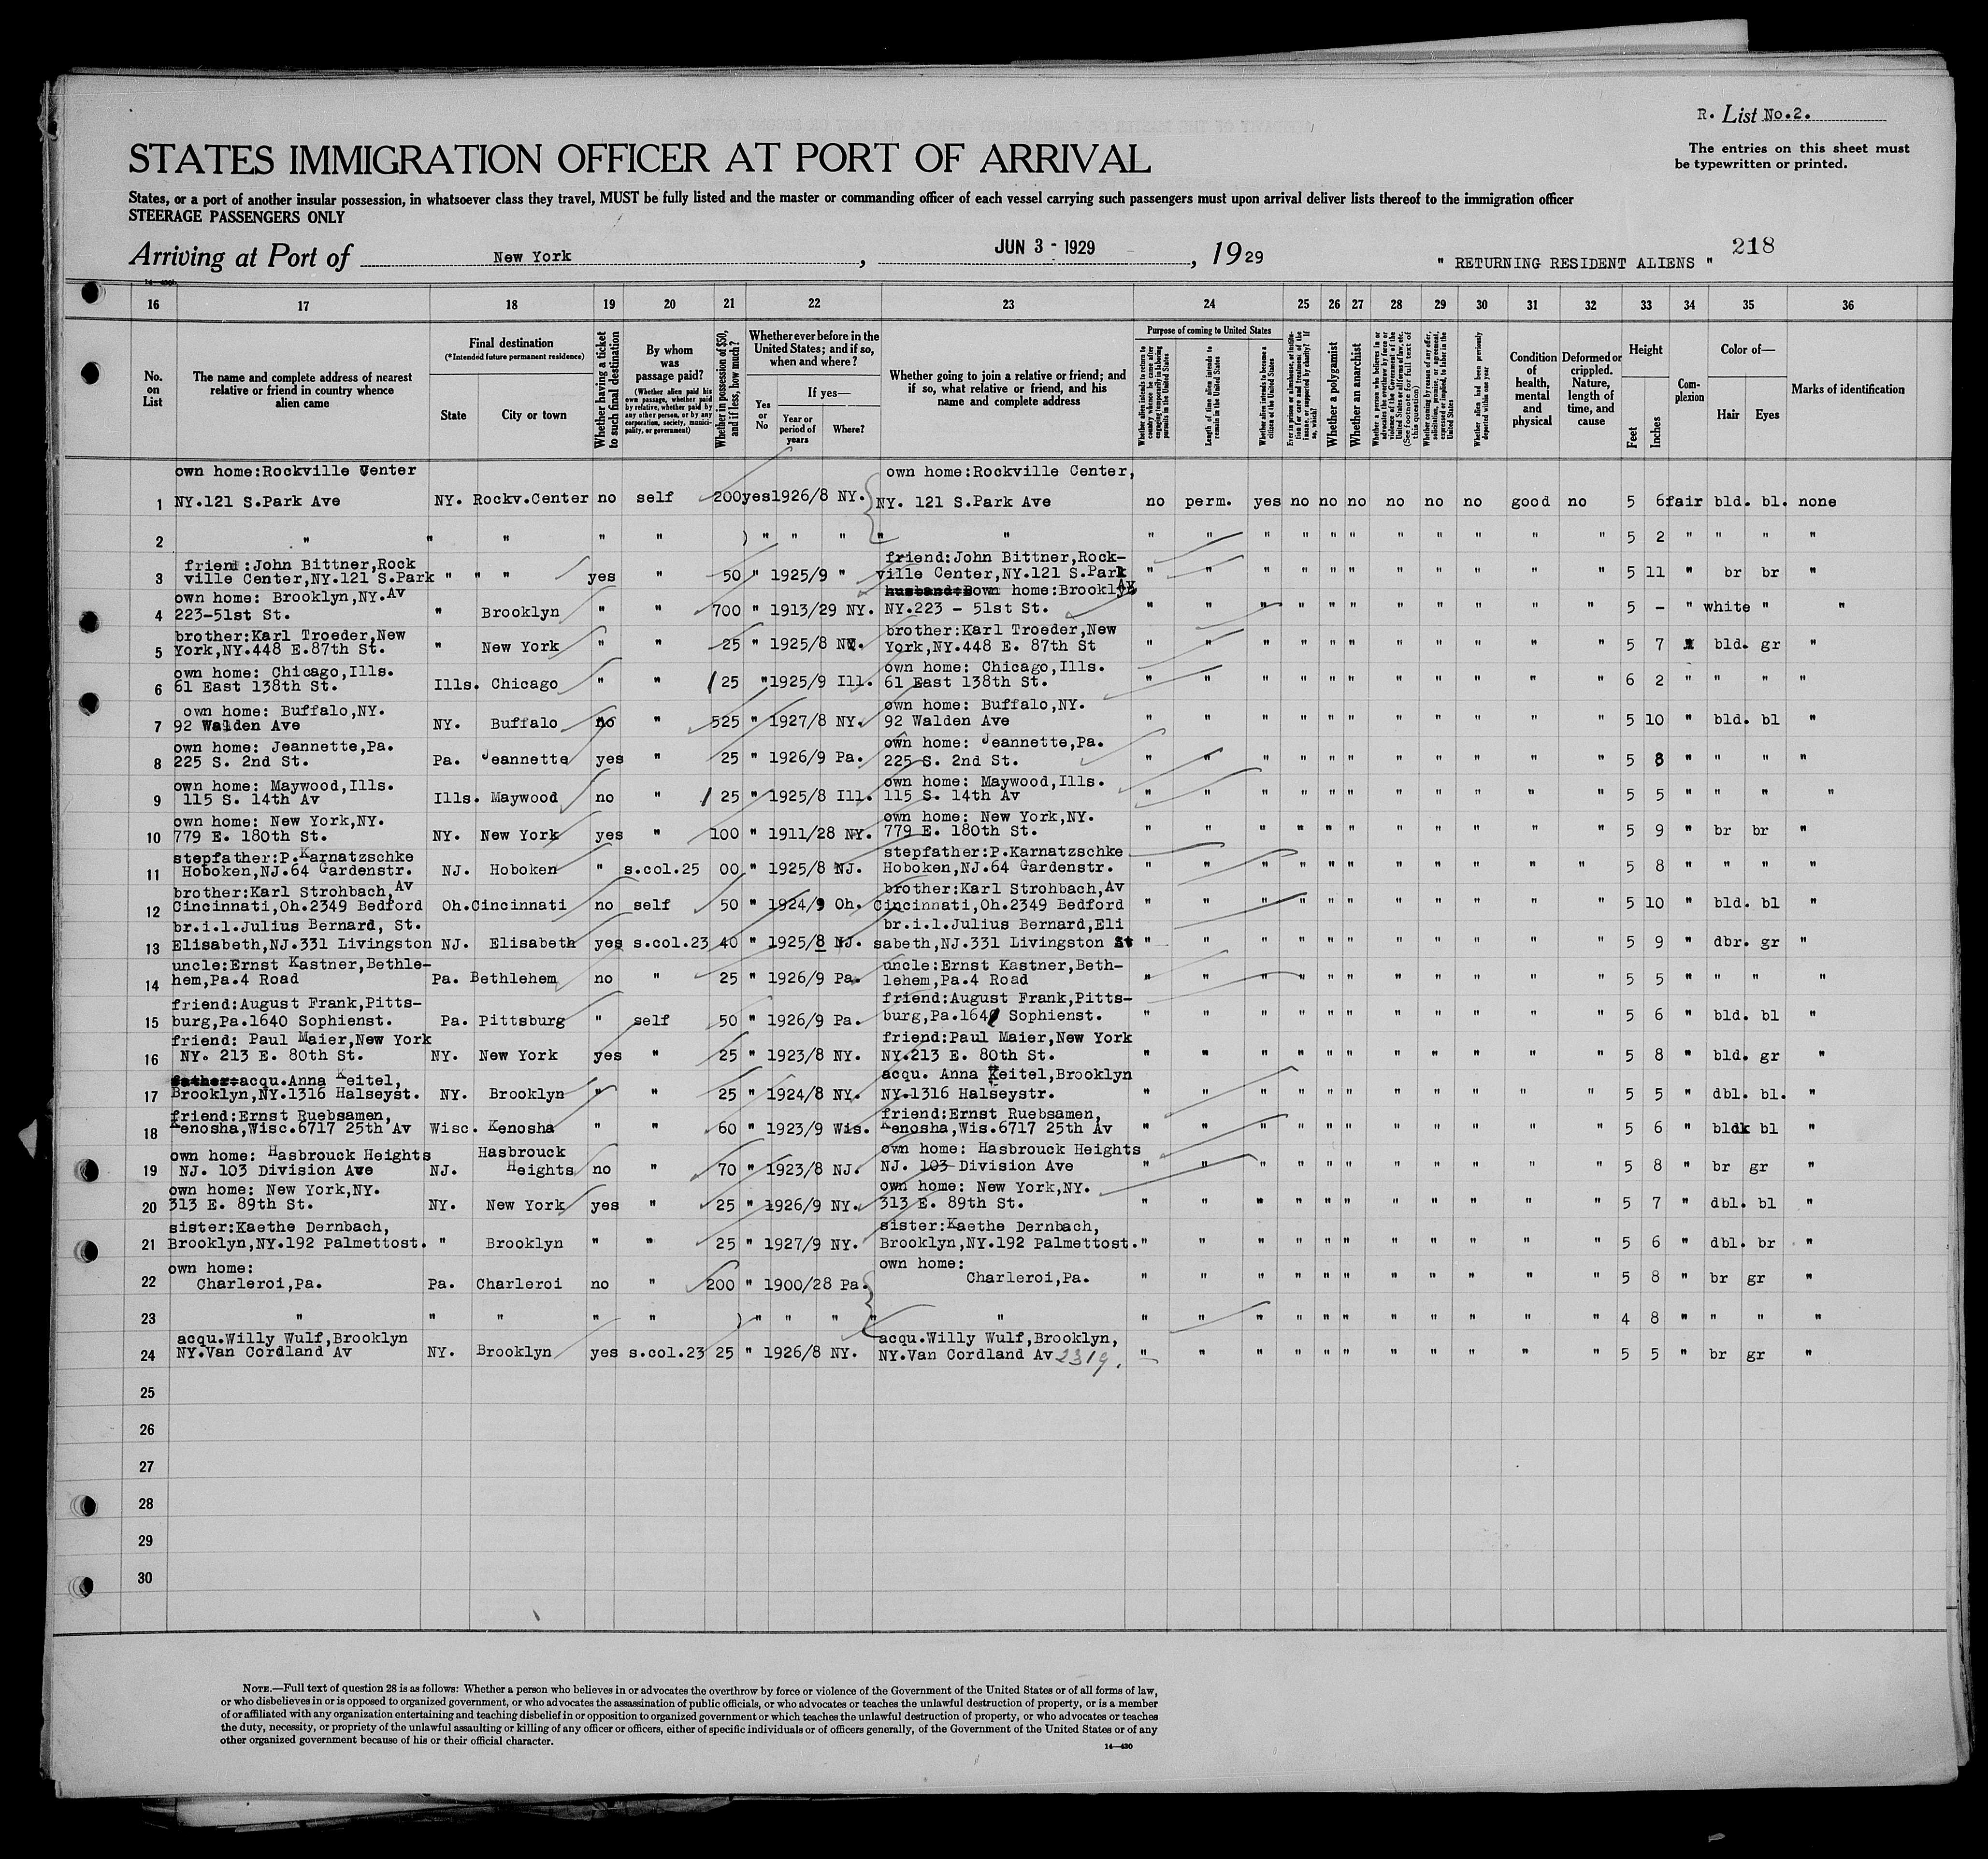 R. List No.2.
The entries on this sheet must
be typewritten or printed.
STATES IMMIGRATION OFFICER AT PORT OF ARRIVAL
States, or a port of another insular possession, in whatsoever class they travel, MUST be fully listed and the master or commanding officer of each vessel carrying such passengers must upon arrival deliver lists thereof to the immigration officer
STEERAGE PASSENGERS ONLY
Arriving at Port of New York, JUN 3 - 1929, 1929
218
" RETURNING RESIDENT ALIENS "
16 17 18 19 20 21 22 23 24 25 26 27 28 29 30 31 32 33 34 35 36
No. on List
The name and complete address of nearest relative or friend in country whence alien came
Final destination
(*Intended future permanent residence)
State
City or town
Whether having a ticket to such final destination
By whom was passage paid?
(Whether alien paid his own passage, whether paid by relative, whether paid by any other person, or by any corporation, society, municipality, or government)
Whether in possession of $50, and if less, how much?
Whether ever before in the United States; and if so, when and where?
Yes or No
If yes—
Year or period of years
Where?
Whether going to join a relative or friend; and if so, what relative or friend, and his name and complete address
Purpose of coming to United States
Whether alien intends to return to country whence he came after engaging temporarily in laboring pursuits in the United States
Length of time alien intends to remain in the United States
Whether alien intends to become a citizen of the United States
Whether a polygamist
Whether an anarchist
Condition of health, mental and physical
Deformed or crippled. Nature, length of time, and cause
Height
Feet
Inches
Complexion
Color of—
Hair
Eyes
Marks of identification
own home:Rockville Center own home:Rockville Center,
1 NY.121 S.Park Ave NY. Rockv.Center no self 200 yes 1926/8 NY. NY. 121 S.Park Ave no perm. yes no no no no no no good no 5 6 fair bld. bl. none
2 " " " " " ) " " " " " " " " " " " " " " " " 5 2 " " " "
friend:John Bittner,Rock friend:John Bittner,Rock-
3 ville Center,NY.121 S.Park " " " yes " 50 " 1925/9 " ville Center,NY.121 S.Park " " " " " " " " " " " 5 11 " br br "
own home: Brooklyn,NY.Av own home:Brooklyn Av
4 223-51st St. " Brooklyn " " 700 " 1913/29 NY. NY.223 - 51st St. " " " " " " " " " " " 5 - " white " "
brother:Karl Troeder,New brother:Karl Troeder,New
5 York,NY.448 E.87th St. " New York " " 25 " 1925/8 NY. York,NY.448 E. 87th St " " " " " " " " " " " 5 7 " bld. gr "
own home: Chicago,Ills. own home: Chicago,Ills.
6 61 East 138th St. Ills. Chicago " " 25 " 1925/9 Ill. 61 East 138th St. " " " " " " " " " " " 6 2 " " " "
own home: Buffalo,NY. own home: Buffalo,NY.
7 92 Walden Ave NY. Buffalo no " 525 " 1927/8 NY. 92 Walden Ave " " " " " " " " " " " 5 10 " bld. bl "
own home: Jeannette,Pa. own home: Jeannette,Pa.
8 225 S. 2nd St. Pa. Jeannette yes " 25 " 1926/9 Pa. 225 S. 2nd St. " " " " " " " " " " " 5 8 " " " "
own home: Maywood,Ills. own home: Maywood,Ills.
9 115 S. 14th Av Ills. Maywood no " 25 " 1925/8 Ill. 115 S. 14th Av " " " " " " " " " " " 5 5 " " " "
own home: New York,NY. own home: New York,NY.
10 779 E. 180th St. NY. New York yes " 100 " 1911/28 NY. 779 E. 180th St. " " " " " " " " " " " 5 9 " br br "
stepfather:P.Karnatzschke stepfather:P.Karnatzschke
11 Hoboken,NJ.64 Gardenstr. NJ. Hoboken " s.col.25 00 " 1925/8 NJ. Hoboken,NJ.64 Gardenstr. " " " " " " " " " " " 5 8 " " " "
brother:Karl Strohbach,Av brother:Karl Strohbach,Av
12 Cincinnati,Oh.2349 Bedford Oh. Cincinnati no self 50 " 1924/9 Oh. Cincinnati,Oh.2349 Bedford " " " " " " " " " " " 5 10 " bld. bl "
br.i.l.Julius Bernard, St. br.i.l.Julius Bernard,Eli
13 Elisabeth,NJ.331 Livingston NJ. Elisabeth yes s.col.23 40 " 1925/8 NJ. sabeth,NJ.331 Livingston St " " " " " " " " " " " 5 9 " dbr. gr "
uncle:Ernst Kastner,Bethle- uncle:Ernst Kastner,Beth-
14 hem,Pa.4 Road Pa. Bethlehem no " 25 " 1926/9 Pa. lehem,Pa.4 Road " " " " " " " " " " " 5 5 " " " "
friend:August Frank,Pitts- friend:August Frank,Pitts-
15 burg,Pa.1640 Sophienst. Pa. Pittsburg " self 50 " 1926/9 Pa. burg,Pa.1640 Sophienst. " " " " " " " " " " " 5 6 " bld. bl "
friend: Paul Maier,New York friend:Paul Maier,New York
16 NY. 213 E. 80th St. NY. New York yes " 25 " 1923/8 NY. NY.213 E. 80th St. " " " " " " " " " " " 5 8 " bld. gr "
acqu.Anna Keitel, acqu. Anna Keitel,Brooklyn
17 Brooklyn,NY.1316 Halseyst. NY. Brooklyn " " 25 " 1924/8 NY. NY.1316 Halseystr. " " " " " " " " " " " 5 5 " dbl. bl. "
friend:Ernst Ruebsamen, friend:Ernst Ruebsamen,
18 Kenosha,Wisc.6717 25th Av Wisc. Kenosha " " 60 " 1923/9 Wis. Kenosha,Wis.6717 25th Av " " " " " " " " " " " 5 6 " bldk bl "
own home: Hasbrouck Heights Hasbrouck own home: Hasbrouck Heights
19 NJ. 103 Division Ave NJ. Heights no " 70 " 1923/8 NJ. NJ. 103 Division Ave " " " " " " " " " " " 5 8 " br gr "
own home: New York,NY. own home: New York,NY.
20 313 E. 89th St. NY. New York yes " 25 " 1926/9 NY. 313 E. 89th St. " " " " " " " " " " " 5 7 " dbl. bl "
sister:Kaethe Dernbach, sister:Kaethe Dernbach,
21 Brooklyn,NY.192 Palmettost. " Brooklyn " " 25 " 1927/9 NY. Brooklyn,NY.192 Palmettost. " " " " " " " " " " " 5 6 " dbl. br "
own home: own home:
22 Charleroi,Pa. Pa. Charleroi no " 200 " 1900/28 Pa. Charleroi,Pa. " " " " " " " " " " " 5 8 " br gr "
23 " " " " " ) " " " " " " " " " " " " " " " " 4 8 " " " "
acqu.Willy Wulf,Brooklyn acqu.Willy Wulf,Brooklyn,
24 NY.Van Cordland Av NY. Brooklyn yes s.col.23 25 " 1926/8 NY. NY.Van Cordland Av 2319. " " " " " " " " " " " 5 5 " br gr "
25
26
27
28
29
30
NOTE.—Full text of question 28 is as follows: Whether a person who believes in or advocates the overthrow by force or violence of the Government of the United States or of all forms of law,
or who disbelieves in or is opposed to organized government, or who advocates the assassination of public officials, or who advocates or teaches the unlawful destruction of property, or is a member
of or affiliated with any organization entertaining and teaching disbelief in or opposition to organized government or which teaches the unlawful destruction of property, or who advocates or teaches
the duty, necessity, or propriety of the unlawful assaulting or killing of any officer or officers, either of specific individuals or of officers generally, of the Government of the United States or of any
other organized government because of his or their official character.
14—430